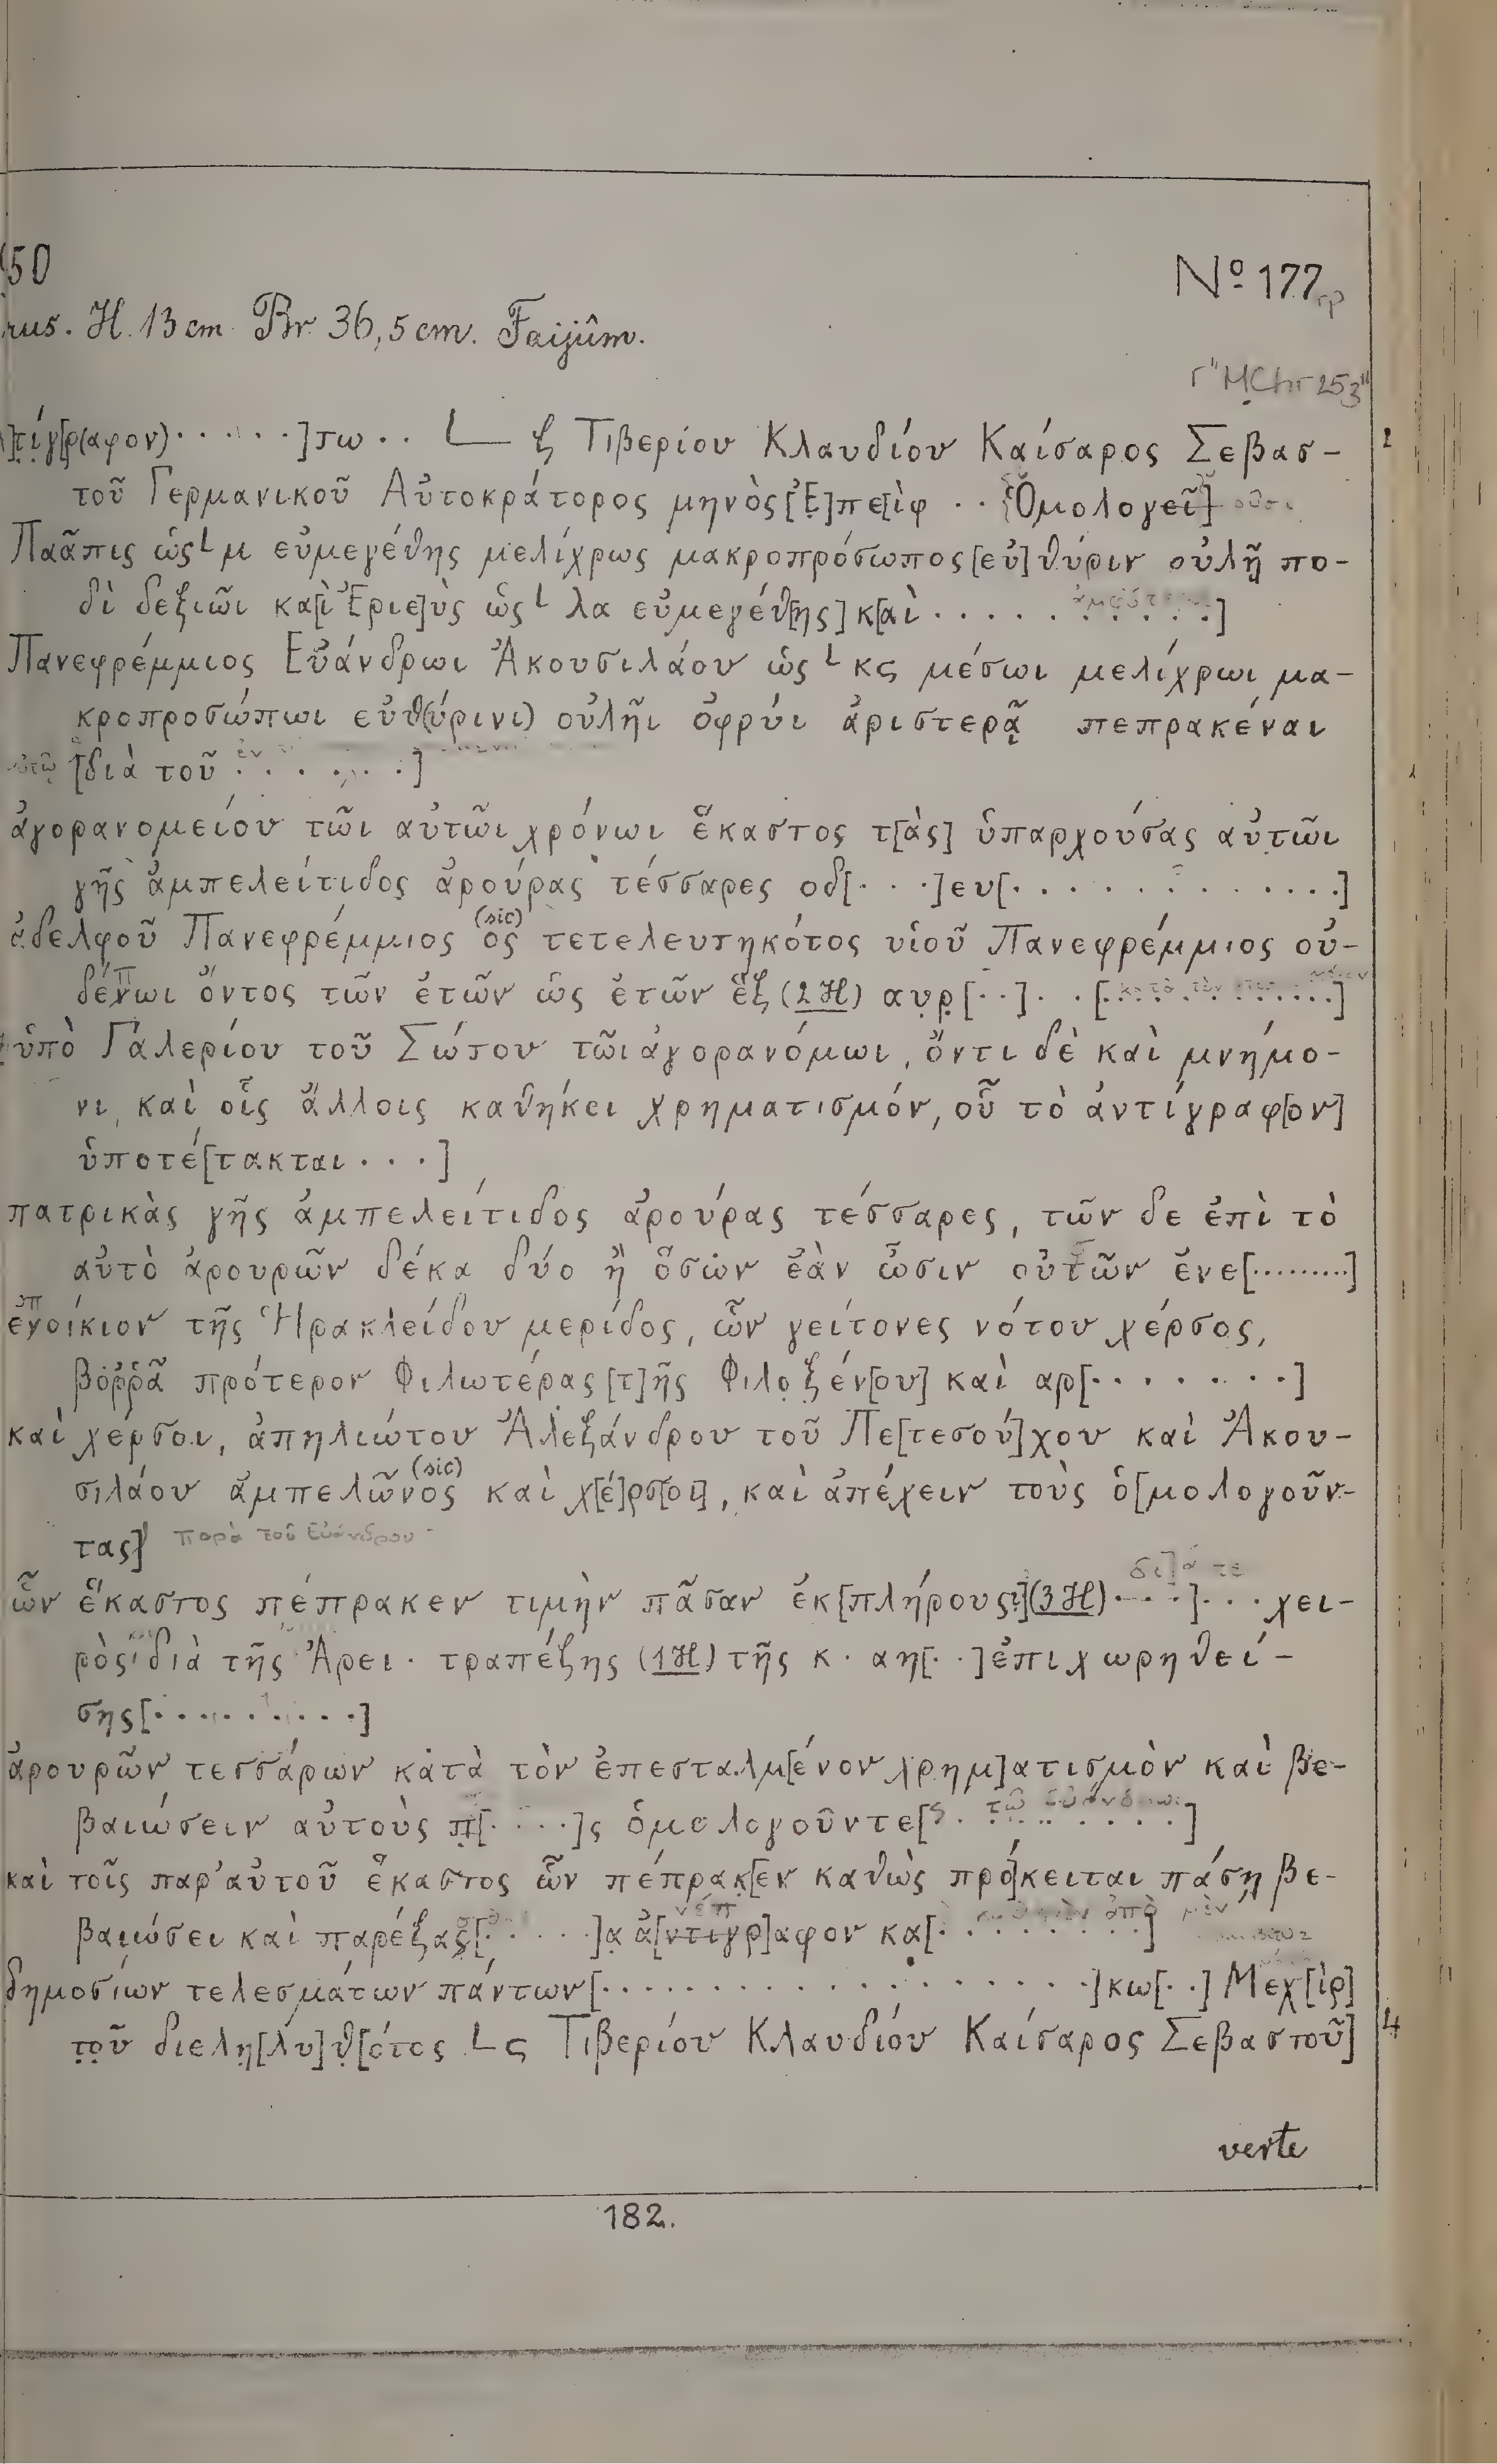 50
No 177
rus. H. 13 cm Br. 36,5 cm. Faijûm.
"MChr 253"
τίγ[ρ(αφον)······]τω·· L ζ Τιβερίου Κλαυδίου Καίσαρος Σεβασ-
τοῦ Γερμανικοῦ Αὐτοκράτορος μηνὸς [Ἐ]πεὶφ ·· Ὁμολογεῖ]
Παᾶπις ὡς L μ εὐμεγέθης μελίχρως μακροπρόσωπος [εὐ]θύριν οὐλῆι πο-
δὶ δεξιῶι κα[ὶ Ἐριε]ὺς ὡς L λα εὐμεγέθ[ης] κ[αὶ ··········]
Πανεφρέμμιος Εὐάνδρωι Ἀκουσιλάου ὡς L κς μέσωι μελίχρωι μα-
κροπροσώπωι εὐθ(ύρινι) οὐλῆι ὀφρύι ἀριστερᾷ πεπρακέναι
[διὰ τοῦ ·······]
ἀγορανομείου τῶι αὐτῶι χρόνωι ἕκαστος τ[ὰς] ὑπαρχούσας αὐτῶι
γῆς ἀμπελείτιδος ἀρούρας τέσσαρες οδ[···]ευ[·············]
ἀδελφοῦ Πανεφρέμμιος ὃς (sic) τετελευτηκότος υἱοῦ Πανεφρέμμιος οὐ-
δένωι ὄντος τῶν ἐτῶν ὡς ἐτῶν ἓξ (2 H) αυρ[··]··[············]
ὑπὸ Γαλερίου τοῦ Σώτου τῶι ἀγορανόμωι, ὄντι δὲ καὶ μνήμο-
νι, καὶ οἷς ἄλλοις καθήκει χρηματισμόν, οὗ τὸ ἀντίγραφ[ον]
ὑποτέ[τακται···]
πατρικὰς γῆς ἀμπελείτιδος ἀρούρας τέσσαρες, τῶν δε ἐπὶ τὸ
αὐτὸ ἀρουρῶν δέκα δύο ἢ ὅσων ἐὰν ὦσιν οὐτῶν ἔνε[·········]
ἐνοίκιον τῆς Ἡρακλείδου μερίδος, ὧν γείτονες νότου χέρσος,
βορρᾶ πρότερον Φιλωτέρας [τ]ῆς Φιλοξέν[ου] καὶ αρ[········]
καὶ χέρσοι, ἀπηλιώτου Ἀλεξάνδρου τοῦ Πε[τεσού]χου καὶ Ἀκου-
σιλάου ἀμπελῶνος (sic) καὶ χ[έ]ρσ[οι], καὶ ἀπέχειν τοὺς ὁ[μολογοῦν-
τας] παρὰ τοῦ Εὐάνδρου
ὧν ἕκαστος πέπρακεν τιμὴν πᾶσαν ἐκ[πλήρους] (3 H) ····]··· χει-
ρὸς διὰ τῆς Ἀρει· τραπέζης (1 H) τῆς κ·αη[··]ἐπιχωρηθεί-
σης[·········]
ἀρουρῶν τεσσάρων κατὰ τὸν ἐπεσταλμ[ένον χρημ]ατισμὸν καὶ βε-
βαιώσειν αὐτοὺς π[····]ς ὁμολογοῦντε[ς ········]
καὶ τοῖς παρ' αὐτοῦ ἕκαστος ὧν πέπρακ[εν καθὼς πρό]κειται πάσῃ βε-
βαιώσει καὶ παρέξας[·····]α ἀ[ντιγρ]αφον κα[·········]
δημοσίων τελεσμάτων πάντων[··················]κω[··] Μεχ[ὶρ]
τοῦ διελη[λυ]θ[ότος L ς Τιβερίου Κλαυδίου Καίσαρος Σεβαστοῦ]
verte
182.